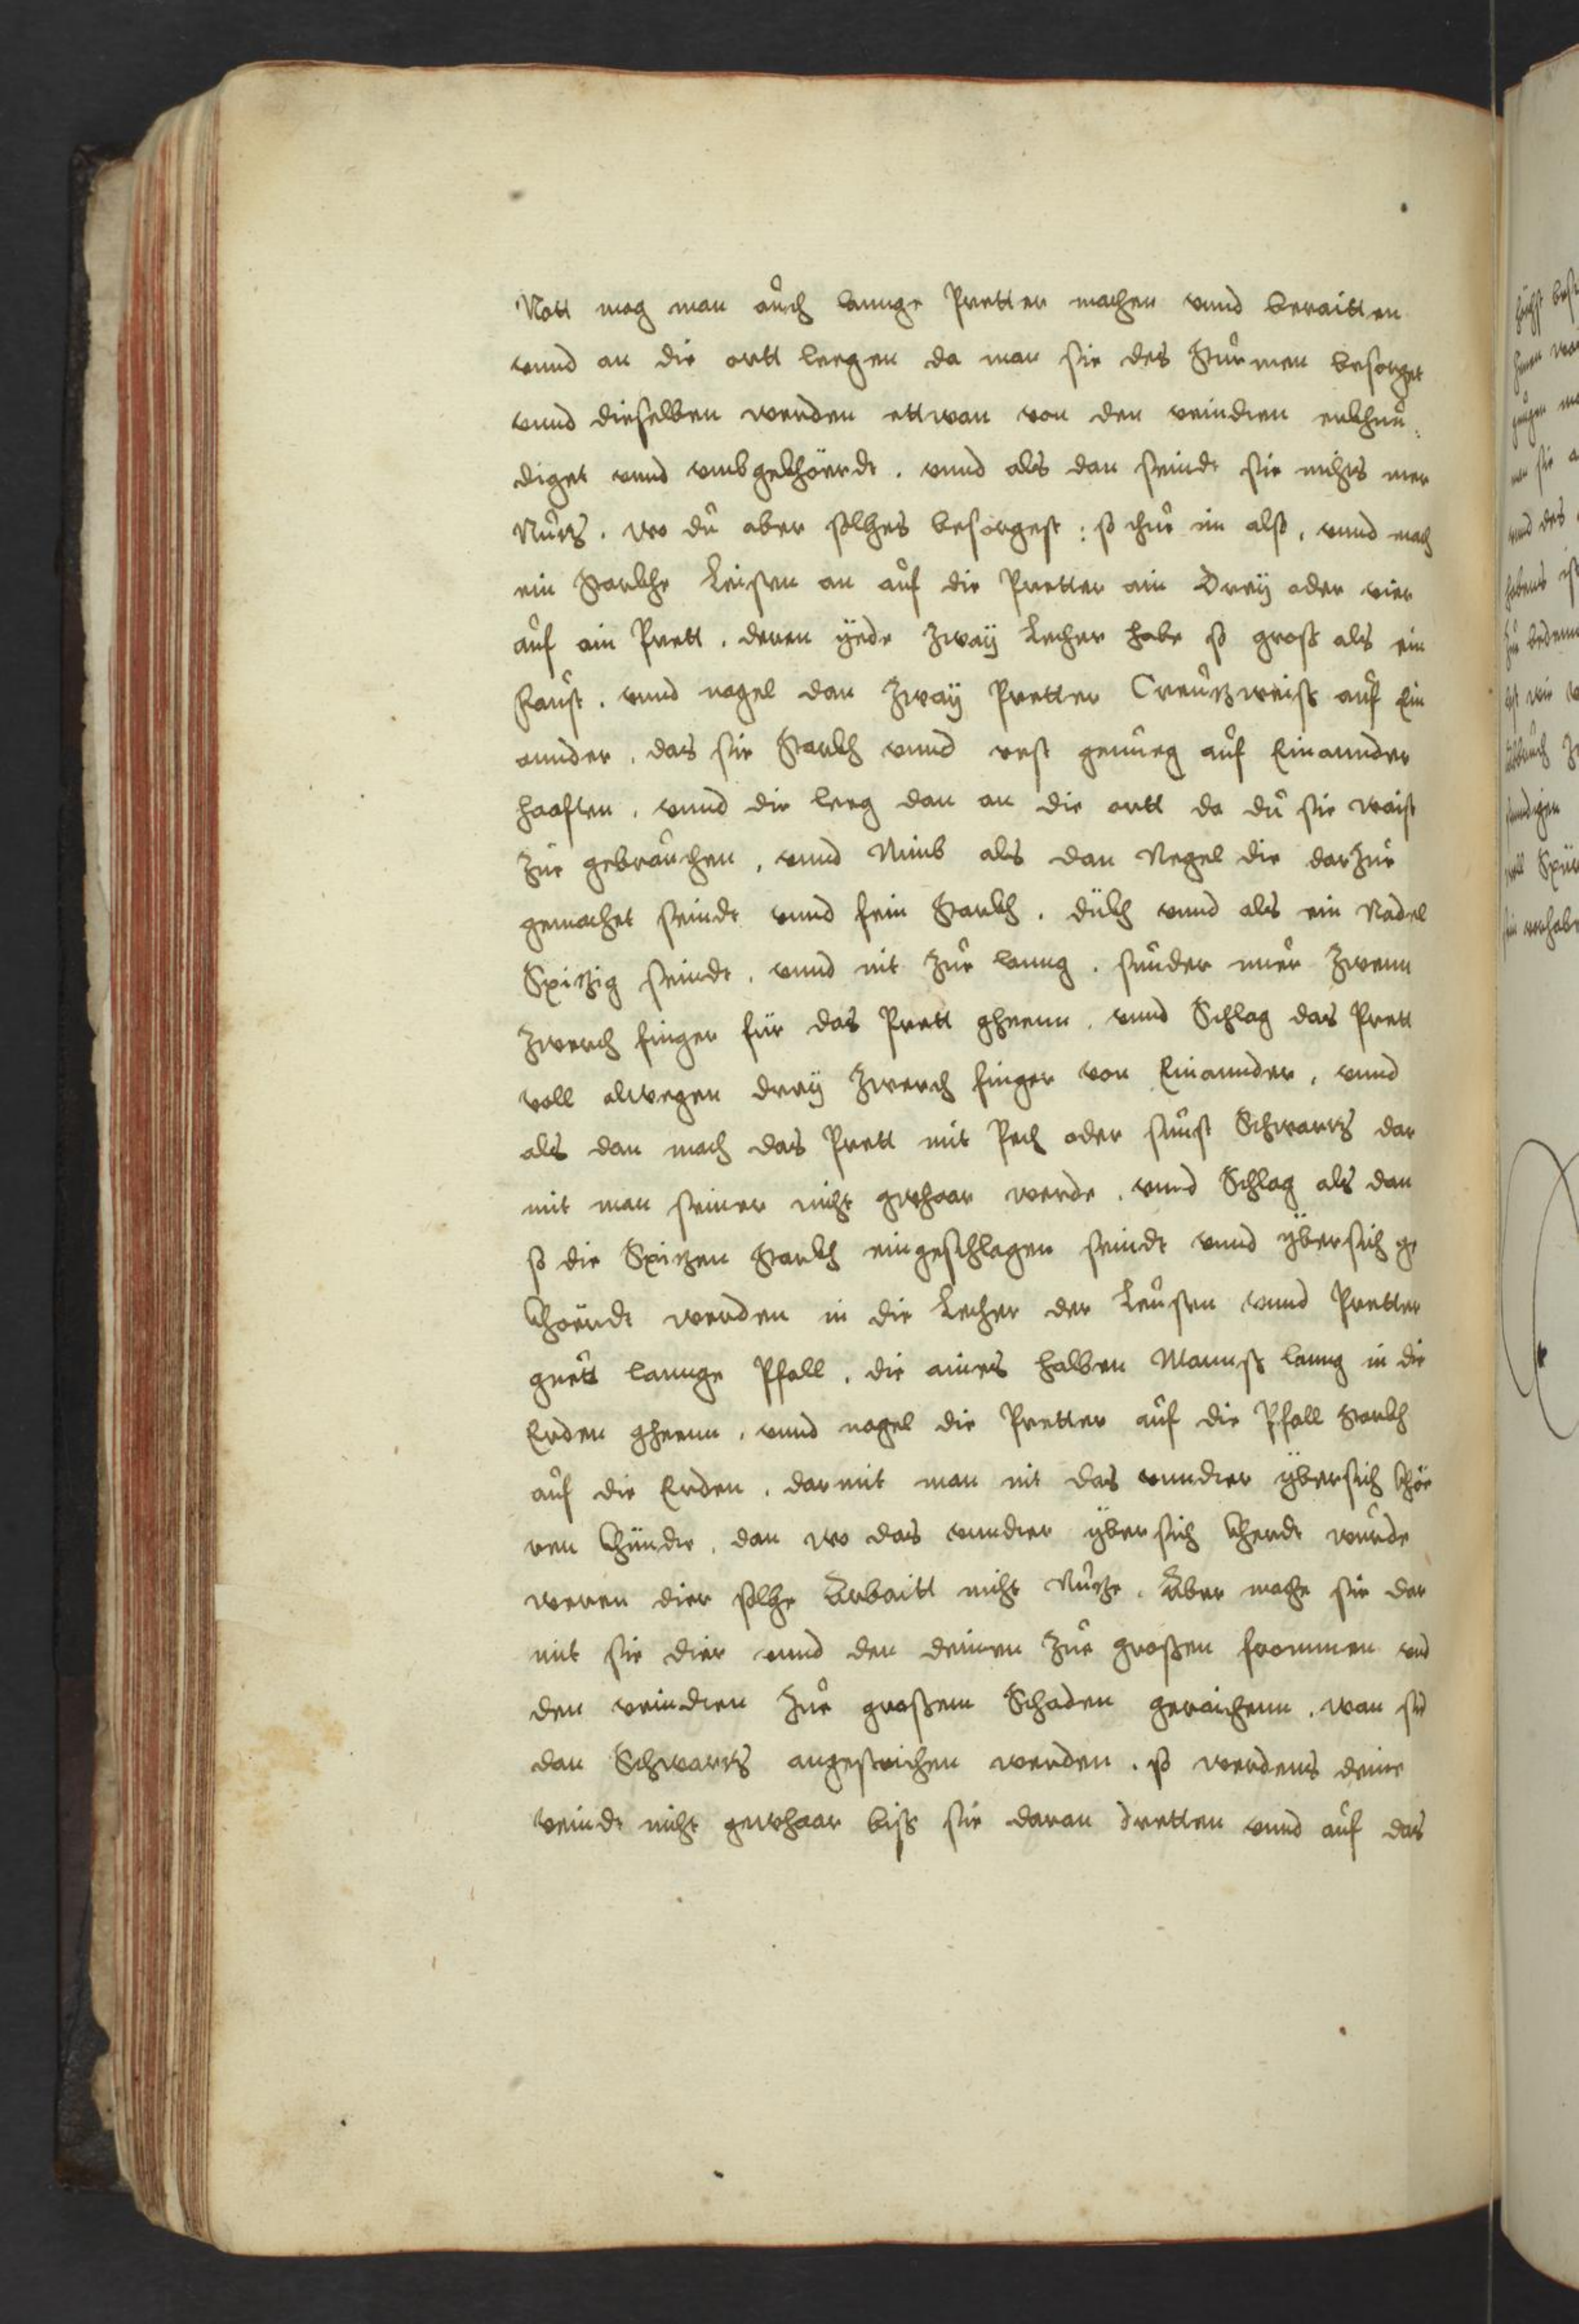 Nott mag man auch lannge Pretter machen vnnd beraitten
vnnd an die ortt leegen da man sie des Sturmen besorget
vnnd dieselben werden ettwan von den veindten erkhun„
diget vnnd vmbgekhöerdt . vnnd als dan seindt sie nichts mer
Nutz . wo du aber solches besorgest : so thue im also , vnnd mach
ein Starkhe Leisten an auf die Pretter ain Dreÿ oder vier
auf ain Prett . deren ÿede zwaÿ Lecher habe so gross als ein
Faust . vnnd nagel dan zwaÿ Pretter Creutzweiss auf Ein
annder , das sie Starkh vnnd vest genueg auf Einannder
haafften , vnnd die leeg dan an die ortt da du sie waist
zue gebrauchen , vnnd Nimb als dan Negel die darzue
gemachet seindt vnnd fein Starkh . dükh vnnd als ein Nadel
Spitzig seindt , vnnd nit zue lanng . sunder nuer zwenn
zwerch finger für das Prett gheenn , vnnd Schlag das Prett
voll alwegen dreÿ zwerch finger von Einannder , vnnd
als dan mach das Prett mit Pech oder sunst Schwartz dar
mit man seiner nicht gwhaar werde , vnnd Schlag als dan
so die Spitzen Starkh eingeschlagen seindt vnnd ÿbersich ge
khoerdt werden in die Lecher der Leusten vnnd Pretter
guett lannge Pfall , die aines halben Mannss lanng in die
Erden gheenn , vnnd nagel die Pretter auf die Pfall starkh
auf die Erden , darmit man nit das vnnder ÿbersich khöe
ren khündte , dan wo das vnnder ÿber sich kherdt wurde
weren dier solche Arbaitt nicht Nutze . Aber mache sie dar
mit sie dier vnnd den deinen zue grossen frommen vnd
den veindten zue grossem Schaden geraichenn . wan sie
dan Schwartz angestrichen werden . so werdens deine
veindt nicht gewhaar biss sie daran dretten vnnd auf das